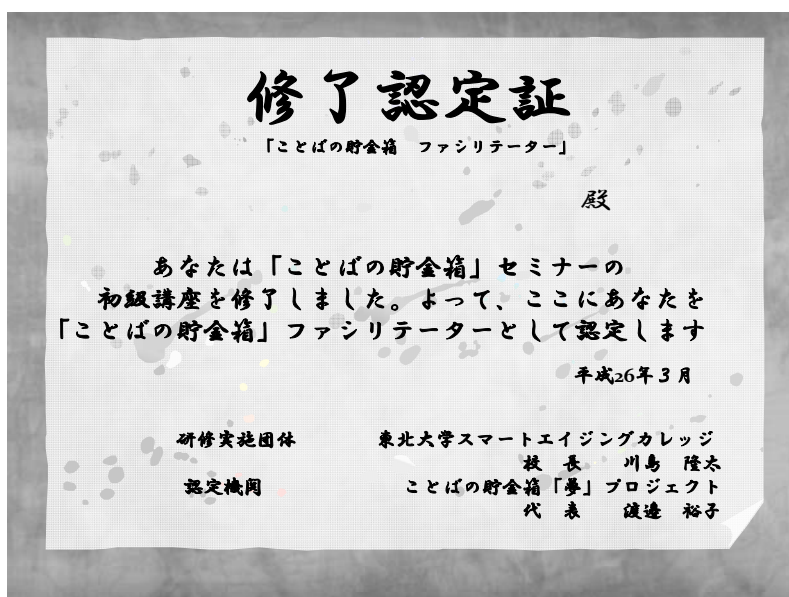 修了認定証
「ことばの貯金箱　ファシリテーター」
殿
あなたは「ことばの貯金箱」セミナーの
初級講座を修了しました。よって、ここにあなたを
「ことばの貯金箱」ファシリテーターとして認定します
平成26年３月
研修実施団体　東北大学スマートエイジングカレッジ
校　長　川島　隆太
認定機関　ことばの貯金箱「夢」プロジェクト
代　表　渡邉　裕子